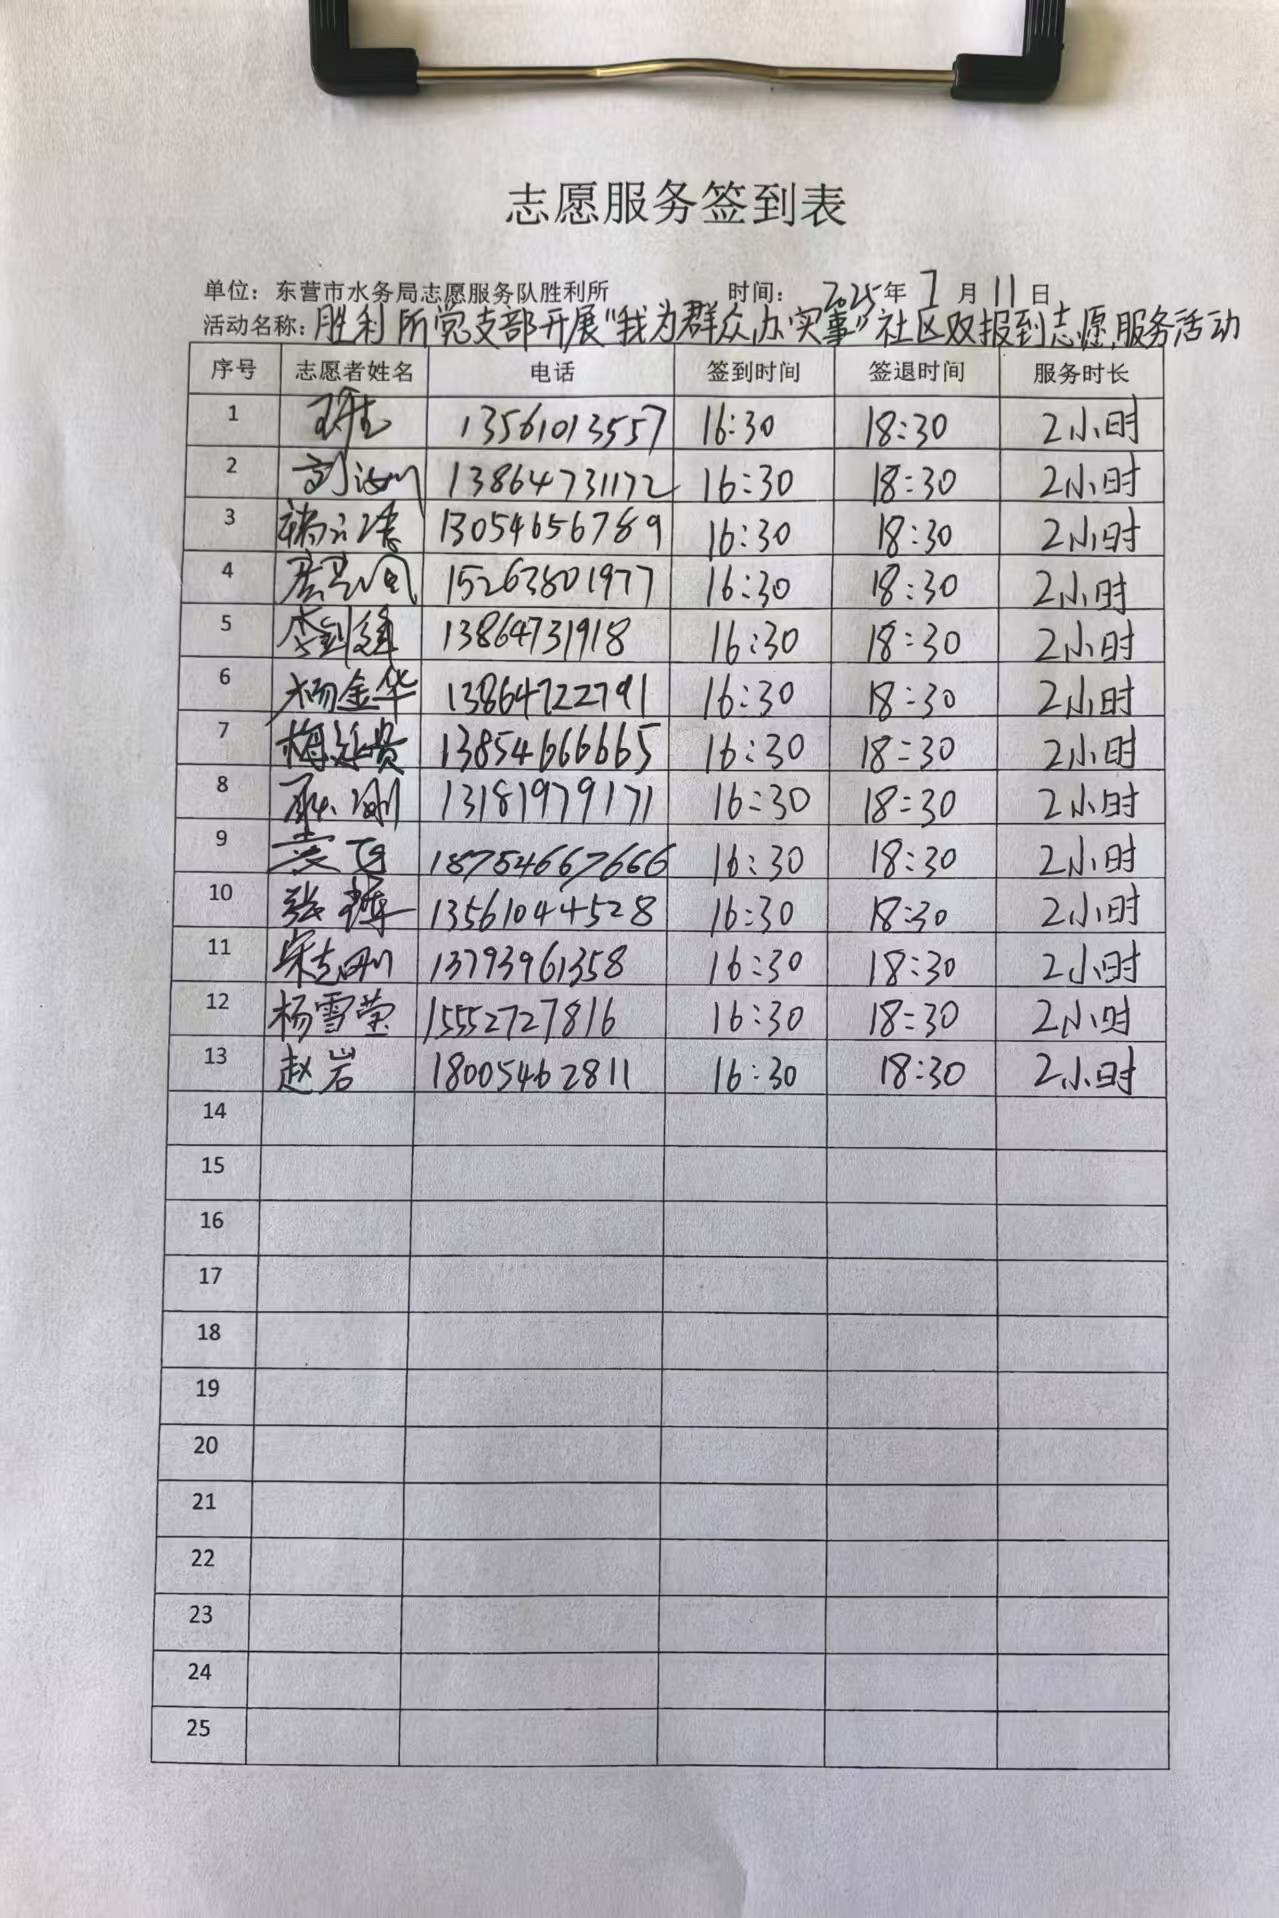 志愿服务签到表
单位：东营市水务局志愿服务队胜利所 时间：2025年7月11日
活动名称：胜利所党支部开展“我为群众办实事”社区双报到志愿服务活动
序号 志愿者姓名 电话 签到时间 签退时间 服务时长
1 13561013557 16:30 18:30 2小时
2 13864731172 16:30 18:30 2小时
3 13054656789 16:30 18:30 2小时
4 15263801977 16:30 18:30 2小时
5 13864731918 16:30 18:30 2小时
6 杨金华 13864722791 16:30 18:30 2小时
7 梅延贵 13854666665 16:30 18:30 2小时
8 13181979171 16:30 18:30 2小时
9 18754667666 16:30 18:30 2小时
10 张 13561044528 16:30 18:30 2小时
11 宋志刚 13793961358 16:30 18:30 2小时
12 杨雪莹 15552727816 16:30 18:30 2小时
13 赵岩 18005462811 16:30 18:30 2小时
14
15
16
17
18
19
20
21
22
23
24
25